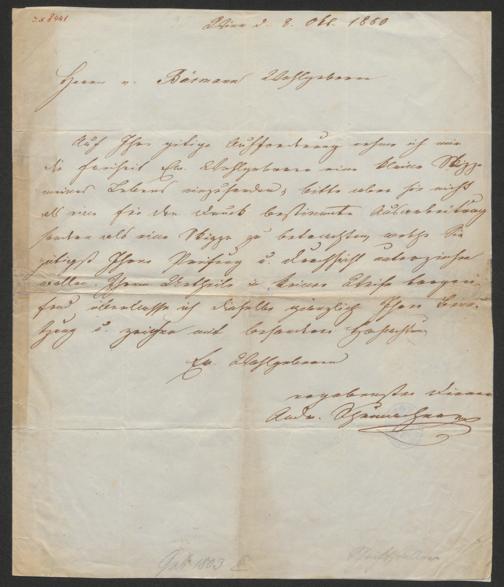 Wien d. 8. Okt. 1860
Herrn v. Börmann Wohlgeboren
Auf Ihre gütige Aufforderung nehme ich mir
die Freiheit Eu. Wohlgeboren eine kleine Skizze
meines Lebens einzusenden, bitte aber sie nicht
als eine für den Druck bestimmte Ausarbeitung
sondern als eine Skizze zu betrachten, welche Sie
gütigst Ihrer Prüfung u. Durchsicht unterziehen
wollen. Ihrem Urtheile in keiner Weise
überlasse ich dieselbe gänzlich Ihrer
u. zeichne mit besonderer Hochachtung
Eu. Wohlgeboren
ergebenster Diener
Andr. Schumacher
Geb. 1803